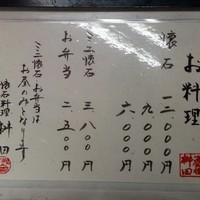 お料理
懐石 一二、〇〇〇円
九、〇〇〇円
六、〇〇〇円
ミニ懐石 三、八〇〇円
お弁当 二、五〇〇円
ミニ懐石 お弁当は
お昼のみとなります
懐石料理 斜田